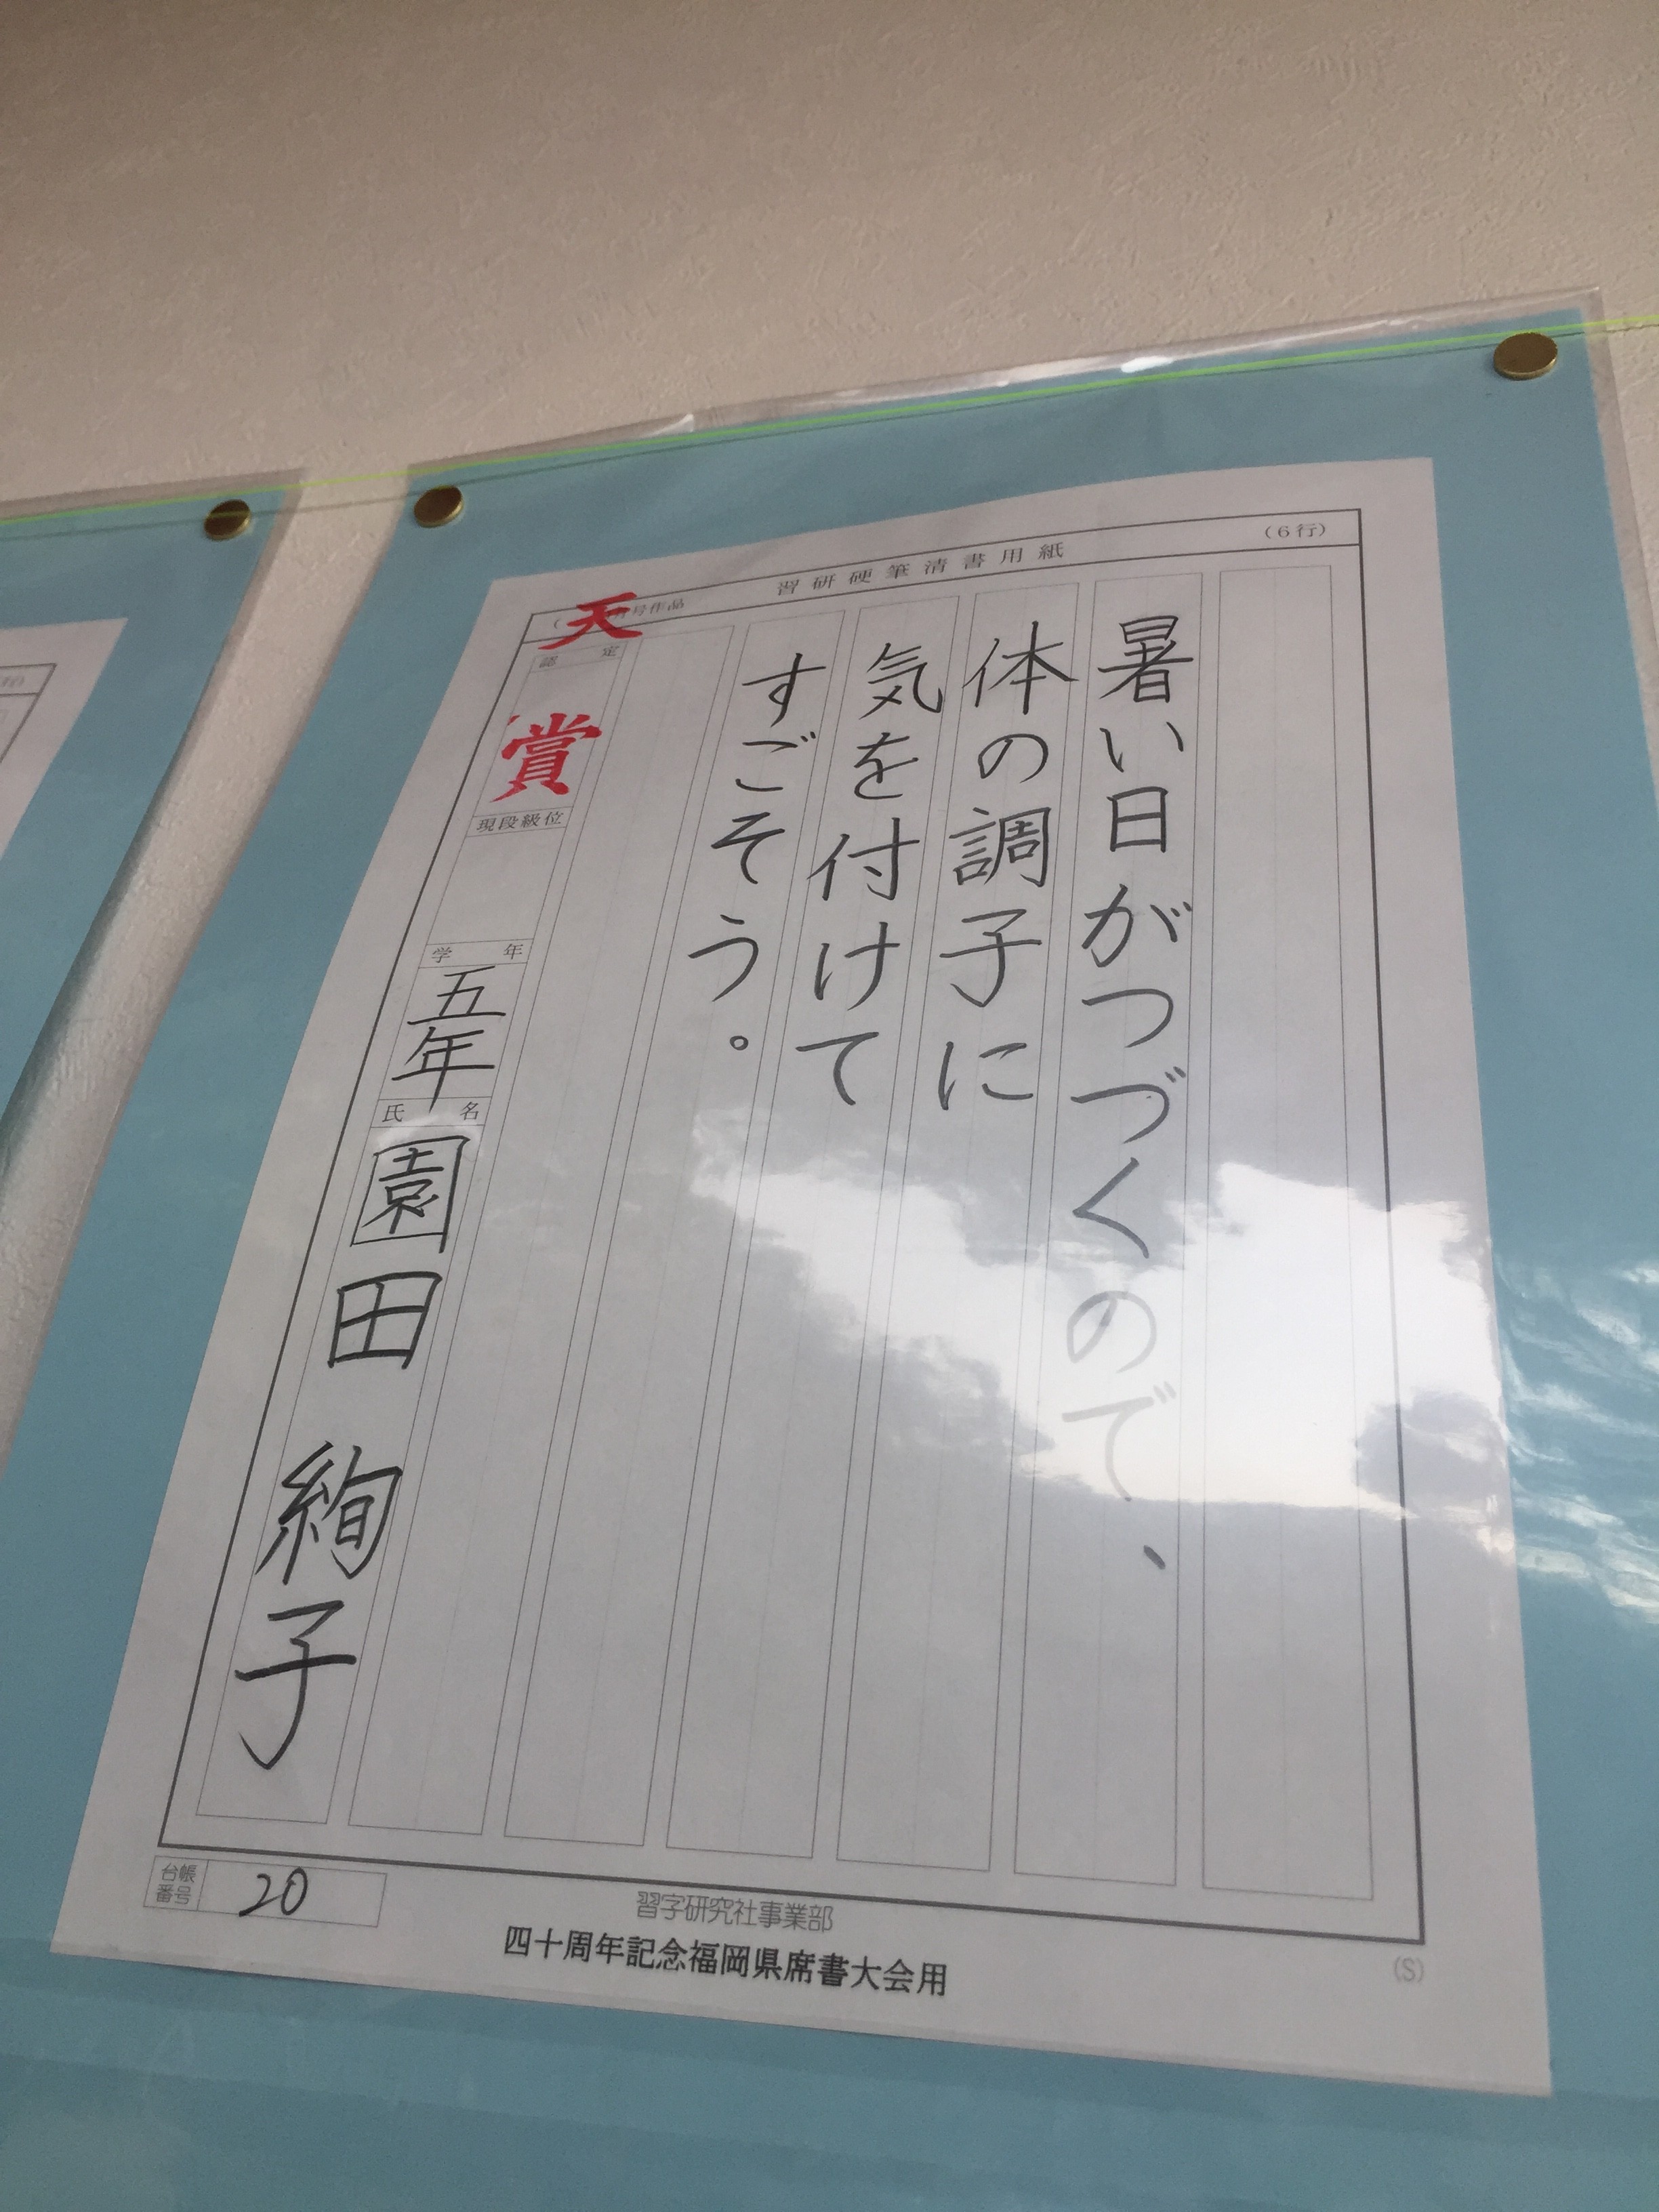 習研硬筆清書用紙
（6行）
暑い日がつづくので、
体の調子に
気を付けて
すごそう。
号作品
天賞
認定
現段級位
学年
五年
氏名
園田 絢子
台帳番号
20
習字研究社事業部
四十周年記念福岡県席書大会用
(S)